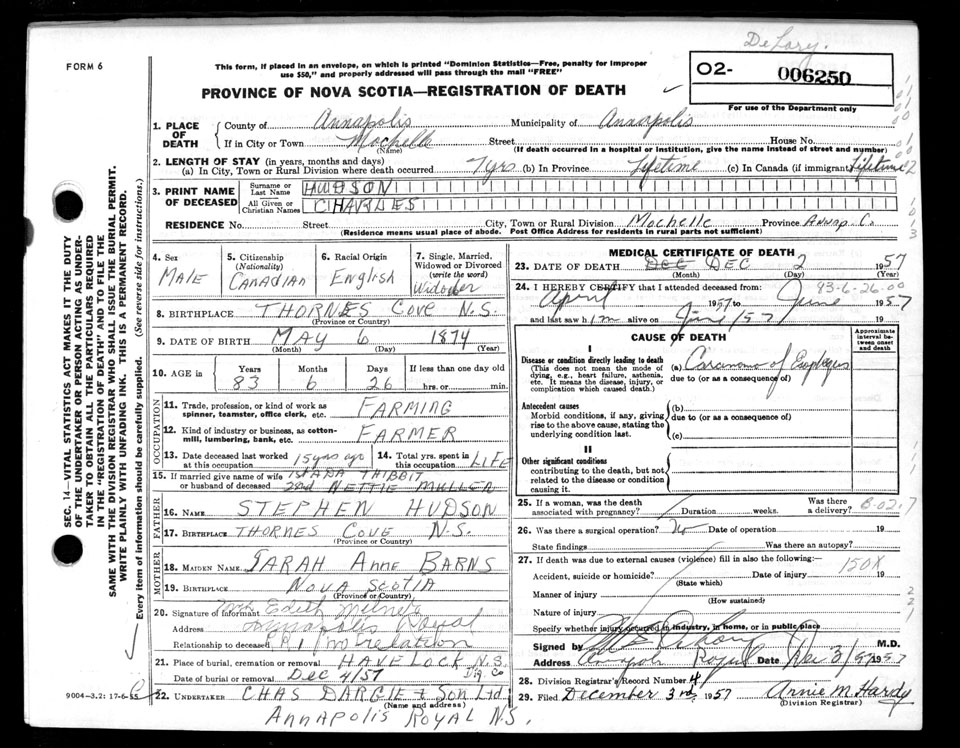 DeLory.
FORM 6
This form, if placed in an envelope, on which is printed "Dominion Statistics—Free, penalty for improper
use $50," and properly addressed will pass through the mail "FREE"
O2- 006250
PROVINCE OF NOVA SCOTIA—REGISTRATION OF DEATH
For use of the Department only
1. PLACE OF DEATH
County of Annapolis Municipality of Annapolis
If in City or Town Mochelle Street House No.
(Name) (If death occurred in a hospital or institution, give the name instead of street and number)
2. LENGTH OF STAY (in years, months and days)
(a) In City, Town or Rural Division where death occurred 7 yrs (b) In Province Lifetime (c) In Canada (if immigrant) Lifetime
3. PRINT NAME OF DECEASED
Surname or Last Name HUDSON
All Given or Christian Names CHARLES
RESIDENCE No. Street City, Town or Rural Division Mochelle Province Annap. C.
(Residence means usual place of abode. Post Office Address for residents in rural parts not sufficient)
4. Sex MALE
5. Citizenship (Nationality) CANADIAN
6. Racial Origin English
7. Single, Married, Widowed or Divorced (write the word) Widower
8. BIRTHPLACE THORNES Cove N.S.
(Province or Country)
9. DATE OF BIRTH MAY 6 1874
(Month) (Day) (Year)
10. AGE IN Years 83 Months 6 Days 26 If less than one day old hrs. or min.
11. Trade, profession, or kind of work as spinner, teamster, office clerk, etc. FARMING
12. Kind of industry or business, as cotton-mill, lumbering, bank, etc. FARMER
13. Date deceased last worked at this occupation 15 yrs ago
14. Total yrs. spent in this occupation LIFE
15. If married give name of wife or husband of deceased 1st ADA THIBBIT
2nd NETTIE MULLEN
FATHER
16. NAME STEPHEN HUDSON
17. BIRTHPLACE THORNES COVE N.S.
(Province or Country)
MOTHER
18. MAIDEN NAME SARAH Anne BARNS
19. BIRTHPLACE NOVA SCOTIA
(Province or Country)
20. Signature of Informant Mrs Edith
Address Annapolis Royal
Relationship to deceased R.1 / no relation
21. Place of burial, cremation or removal HAVELOCK N.S.
Date of burial or removal Dec 4/57 Dig. Co
9004—3.2: 17-6-55
22. UNDERTAKER CHAS DARGIE & Son Ltd.
(Name and Address)
ANNAPOLIS ROYAL N.S.
MEDICAL CERTIFICATE OF DEATH
23. DATE OF DEATH DEC DEC 2 1957
(Month) (Day) (Year)
93-6-26-00
24. I HEREBY CERTIFY that I attended deceased from:
April 1957 to June 1957
and last saw him alive on June /57 19
CAUSE OF DEATH
Approximate interval between onset and death
I
Disease or condition directly leading to death
(This does not mean the mode of dying, e.g., heart failure, asthenia, etc. It means the disease, injury, or complication which caused death.)
(a) Carcinoma of
due to (or as a consequence of)
Antecedent causes
Morbid conditions, if any, giving rise to the above cause, stating the underlying condition last.
(b)
due to (or as a consequence of)
(c)
II
Other significant conditions
contributing to the death, but not related to the disease or condition causing it.
25. If a woman, was the death associated with pregnancy? Duration weeks. Was there a delivery?
B-02.7
26. Was there a surgical operation? No Date of operation 19
State findings Was there an autopsy?
27. If death was due to external causes (violence) fill in also the following:—
150X
Accident, suicide or homicide? Date of injury 19
(State which)
Manner of injury
(How sustained)
Nature of injury
Specify whether injury occurred in industry, in home, or in public place
Signed by M.D.
Address Annapolis Royal Date Dec 3/57 1957
28. Division Registrar's Record Number 4
29. Filed December 3rd 1957 Annie M. Hardy
(Division Registrar)
SEC. 14—VITAL STATISTICS ACT MAKES IT THE DUTY
OF THE UNDERTAKER OR PERSON ACTING AS UNDER-
TAKER TO OBTAIN ALL THE PARTICULARS REQUIRED
IN THE "REGISTRATION OF DEATH" AND TO FILE THE
SAME WITH THE DIVISION REGISTRAR WHO SHALL ISSUE THE BURIAL PERMIT.
WRITE PLAINLY WITH UNFADING INK. THIS IS A PERMANENT RECORD.
Every item of information should be carefully supplied. (See reverse side for instructions.)